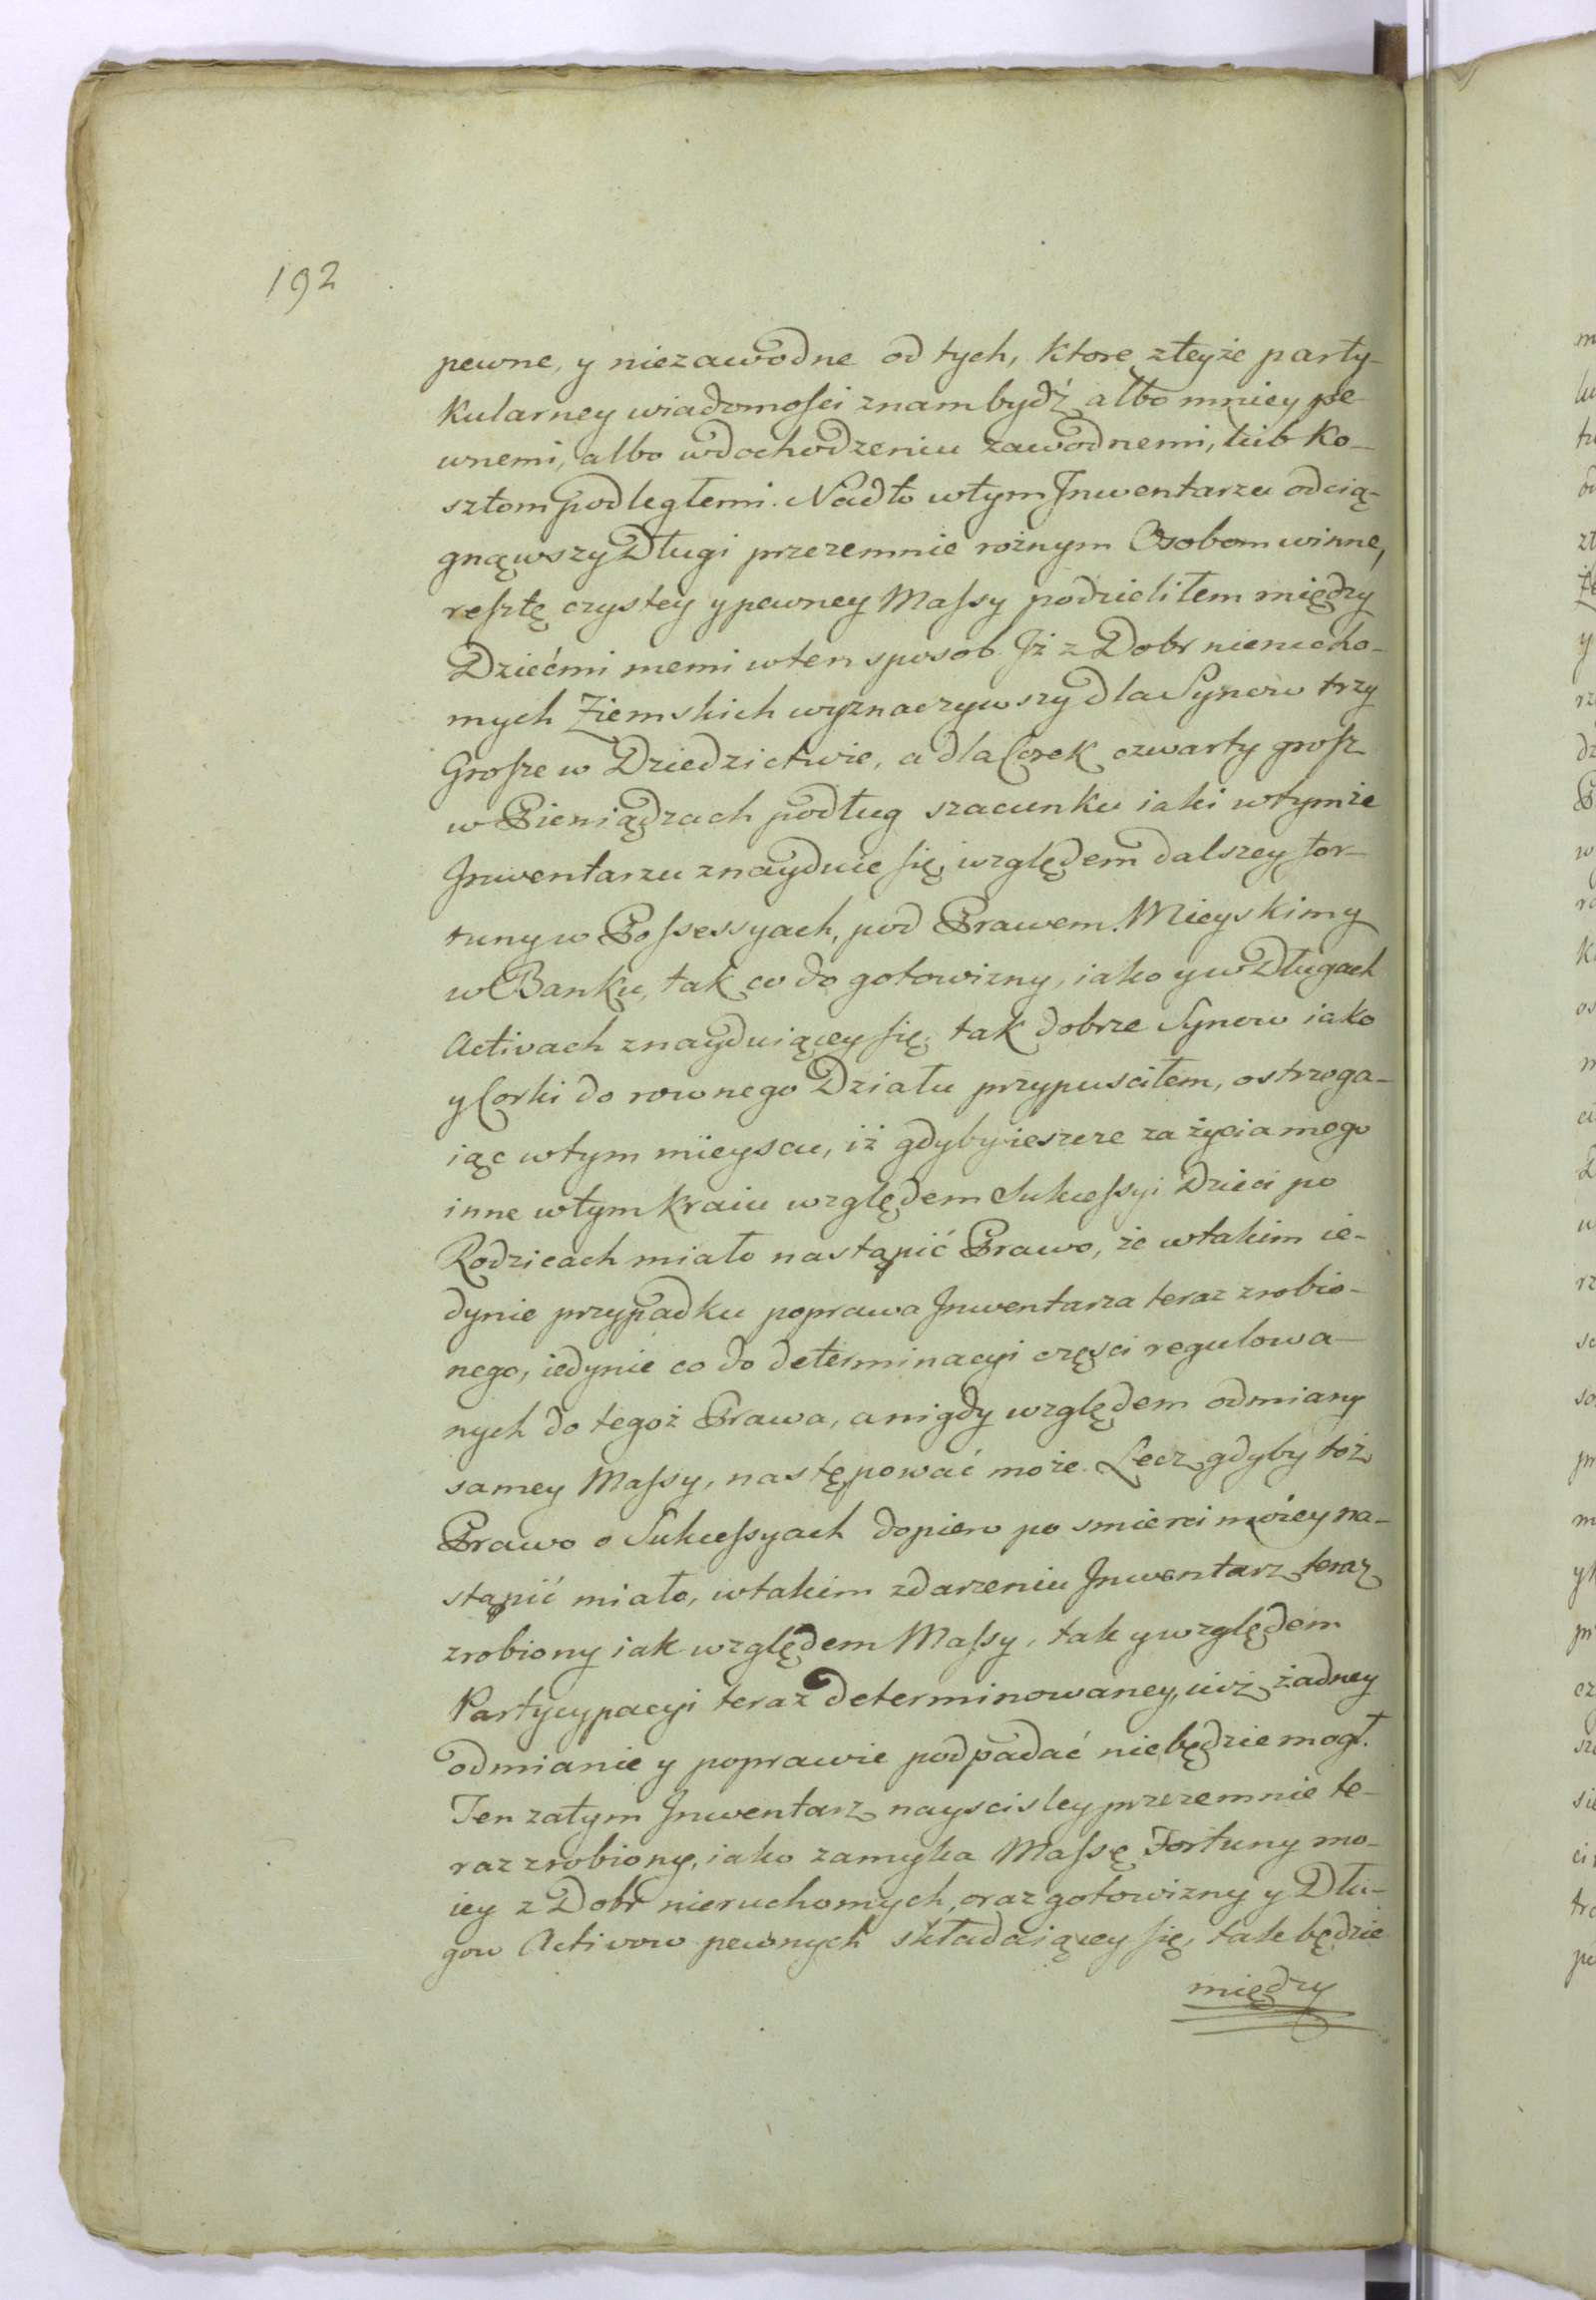 192
pewne, y niezawodne od tych, ktore z teyże party-
kularney wiadomosci znam bydź albo mniey pe-
wnemi, albo w dochodzeniu zawodnemi, lub ko-
sztom podległemi. Nadto w tym Inwentarzu odcią-
gnąwszy Długi przezemnie rożnym Osobom winne,
resztę czystey y pewney Massy podzieliłem między
Dziećmi memi w ten sposob Iż z Dobr nierucho-
mych Ziemskich wyznaczywszy dla Synow trzy
Grosze w Dziedzictwie, a dla Corek czwarty grosz
w Pieniądzach podług szacunku iaki w tymże
Inwentarzu znayduie się, względem dalszey for-
tuny w Possessyach, pod Prawem Mieyskim y
w Banku, tak co do gotowizny, iako y w Długach
Activach znayduiącey się, tak dobrze Synow iako
y Corki do rownego Działu przypusciłem, ostrzega-
iąc w tym mieyscu, iż gdyby ieszcze za życia mego
inne w tym kraiu względem Sukcessyi Dzieci po
Rodzicach miało nastąpić Prawo, że w takim ie-
dynie przypadku poprawa Inwentarza teraz zrobio-
nego, iedynie co do determinacyi części regulowa-
nych do tegoż Prawa, a nigdy względem odmiany
samey Massy, następować może. Lecz gdyby toż
Prawo o Sukcessyach dopiero po smierci moiey na-
stąpić miało, w takim zdarzeniu Inwentarz teraz
zrobiony iak względem Massy, tak y względem
Partycypacyi teraz determinowaney, iuż żadney
odmianie y poprawie podpadać nie będzie mogł.
Ten zatym Inwentarz nayscisley przezemnie te-
raz zrobiony, iako zamyka Massę Fortuny mo-
iey z Dobr nieruchomych, oraz gotowizny y Dłu-
gow Activow pewnych składaiącey się, tak będzie
między